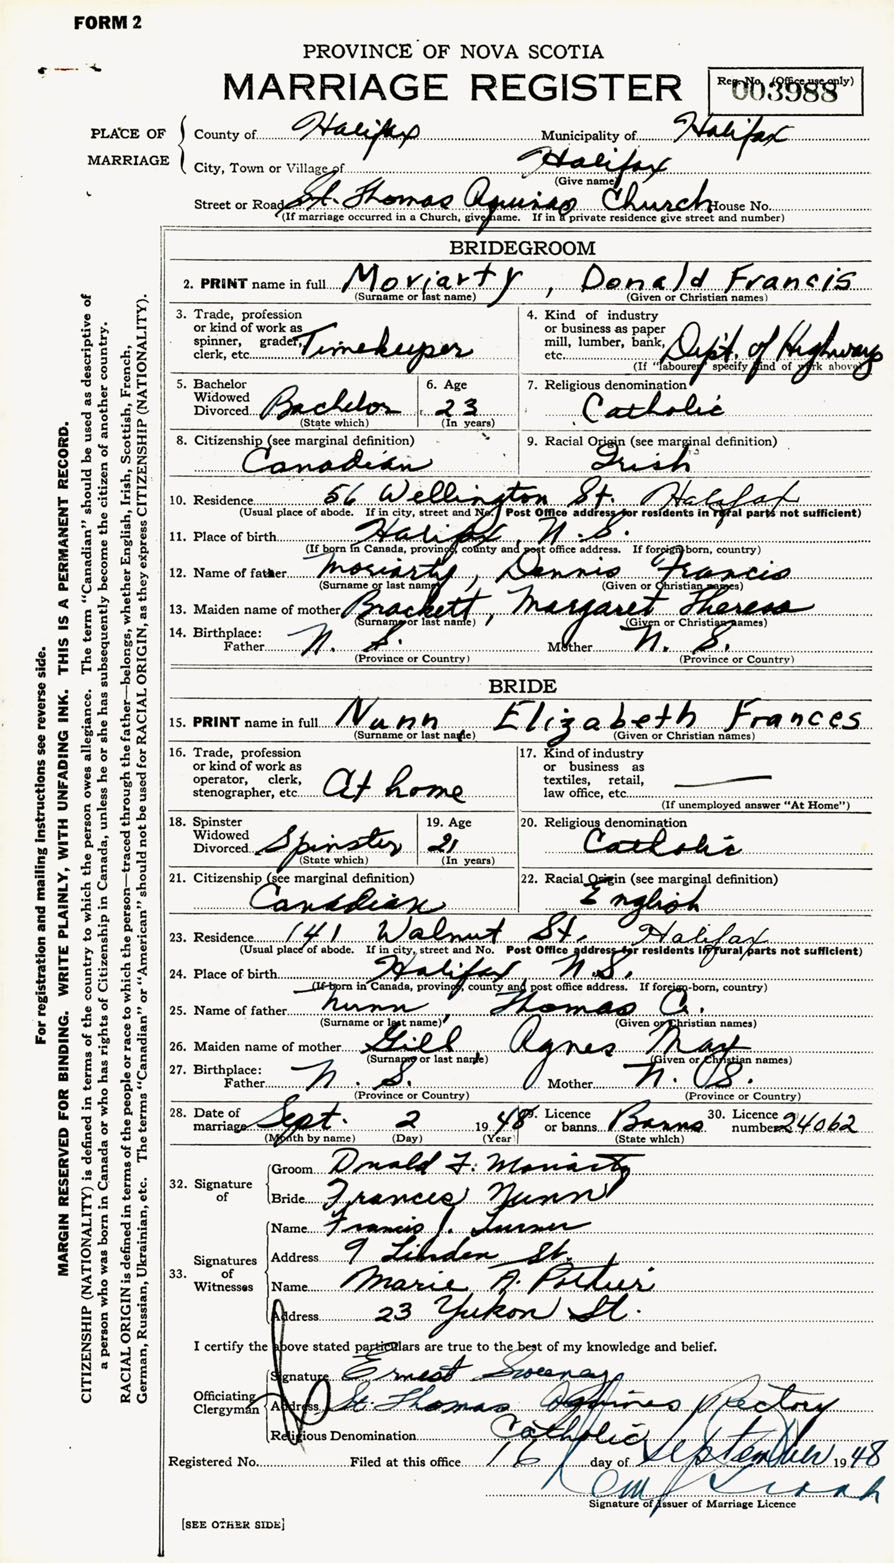 FORM 2
PROVINCE OF NOVA SCOTIA
MARRIAGE REGISTER
Reg. No. (Office use only)
003988
PLACE OF MARRIAGE
County of Halifax Municipality of Halifax
City, Town or Village of Halifax
(Give name)
Street or Road St. Thomas Aquinas Church House No.
(If marriage occurred in a Church, give name. If in a private residence give street and number)
BRIDEGROOM
2. PRINT name in full Moriarty, Donald Francis
(Surname or last name) (Given or Christian names)
3. Trade, profession
or kind of work as
spinner, grader,
clerk, etc. Timekeeper
4. Kind of industry
or business as paper
mill, lumber, bank,
etc. Dept. of Highways
(If "labourer" specify kind of work above)
5. Bachelor
Widowed
Divorced Bachelor
(State which)
6. Age
23
(In years)
7. Religious denomination
Catholic
8. Citizenship (see marginal definition)
Canadian
9. Racial Origin (see marginal definition)
Irish
10. Residence 56 Wellington St. Halifax
(Usual place of abode. If in city, street and No. Post Office address for residents in rural parts not sufficient)
11. Place of birth Halifax, N.S.
(If born in Canada, province, county and post office address. If foreign-born, country)
12. Name of father Moriarty, Dennis Francis
(Surname or last name) (Given or Christian names)
13. Maiden name of mother Brackett, Margaret Theresa
(Surname or last name) (Given or Christian names)
14. Birthplace:
Father N. S. Mother N. S.
(Province or Country) (Province or Country)
BRIDE
15. PRINT name in full Nunn Elizabeth Frances
(Surname or last name) (Given or Christian names)
16. Trade, profession
or kind of work as
operator, clerk,
stenographer, etc. At home
17. Kind of industry
or business as
textiles, retail,
law office, etc.
(If unemployed answer "At Home")
18. Spinster
Widowed
Divorced Spinster
(State which)
19. Age
21
(In years)
20. Religious denomination
Catholic
21. Citizenship (see marginal definition)
Canadian
22. Racial Origin (see marginal definition)
English
23. Residence 141 Walnut St. Halifax
(Usual place of abode. If in city, street and No. Post Office address for residents in rural parts not sufficient)
24. Place of birth Halifax N.S.
(If born in Canada, province, county and post office address. If foreign-born, country)
25. Name of father Nunn, Thomas C.
(Surname or last name) (Given or Christian names)
26. Maiden name of mother Gill Agnes May
(Surname or last name) (Given or Christian names)
27. Birthplace:
Father N. S. Mother N. S.
(Province or Country) (Province or Country)
28. Date of
marriage Sept. 2 1948
(Month by name) (Day) (Year)
29. Licence
or banns Banns
(State which)
30. Licence
number 24062
32. Signature of
Groom Donald F. Moriarty
Bride Frances Nunn
33. Signatures of Witnesses
Name Francis J. Turner
Address 9 Linden St.
Name Marie A. Poitier
Address 23 Yukon St.
I certify the above stated particulars are true to the best of my knowledge and belief.
Officiating Clergyman
Signature Ernest Sweeney
Address St. Thomas Aquinas Rectory
Religious Denomination Catholic
Registered No. Filed at this office 16 day of September 1948
Signature of Issuer of Marriage Licence
[SEE OTHER SIDE]
For registration and mailing instructions see reverse side.
MARGIN RESERVED FOR BINDING. WRITE PLAINLY, WITH UNFADING INK. THIS IS A PERMANENT RECORD.
CITIZENSHIP (NATIONALITY) is defined in terms of the country to which the person owes allegiance. The term "Canadian" should be used as descriptive of
a person who was born in Canada or who has rights of Citizenship in Canada, unless he or she has subsequently become the citizen of another country.
RACIAL ORIGIN is defined in terms of the people or race to which the person—traced through the father—belongs, whether English, Irish, Scottish, French,
German, Russian, Ukrainian, etc. The terms "Canadian" or "American" should not be used for RACIAL ORIGIN, as they express CITIZENSHIP (NATIONALITY).